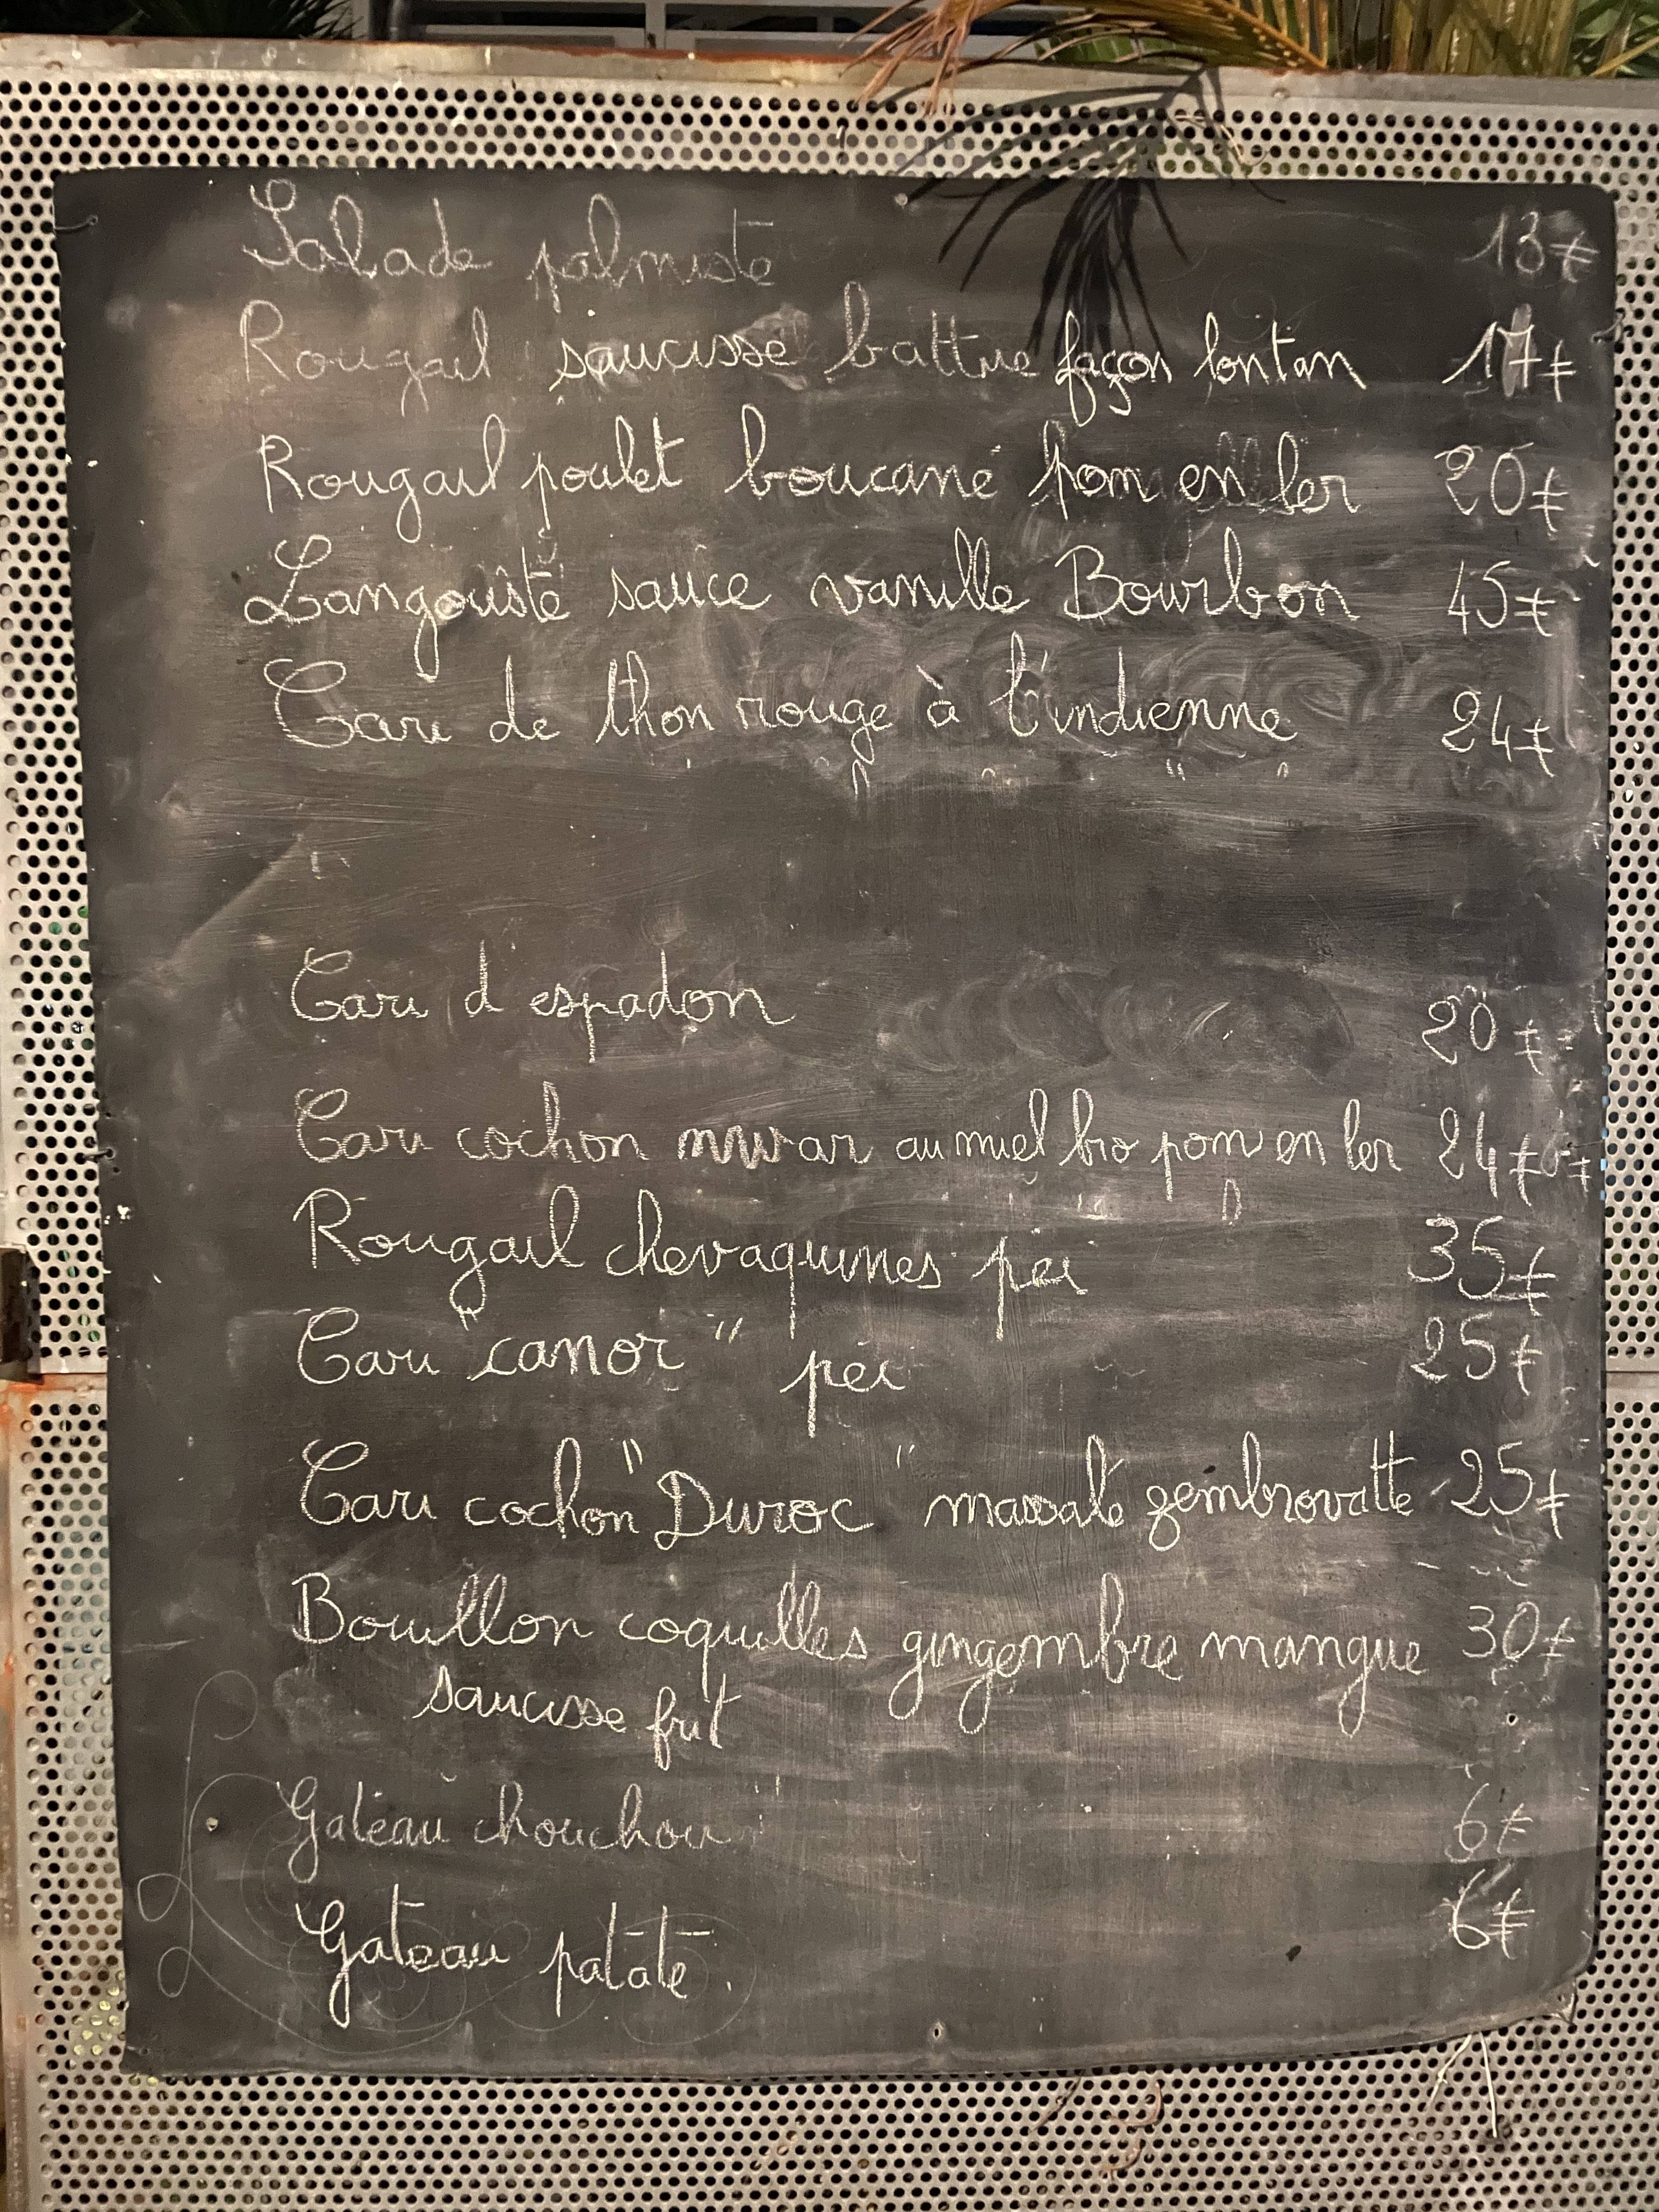 Salade palmiste 13€
Rougail saucisse battue façon lontan 17€
Rougail poulet boucané pom en ler 20€
Langouste sauce vanille Bourbon 45€
Cari de thon rouge à l'indienne 24€
Cari d'espadon 20€
Cari cochon mwar au miel bio pom en ler 24€
Rougail chevaquines péi 35€
Cari "canor" péi 25€
Cari cochon "Duroc" massalé gembrovatte 25€
Bouillon coquilles gingembre mangue 30€
saucisse frit
Gateau chouchou 6€
Gateau patate. 6€